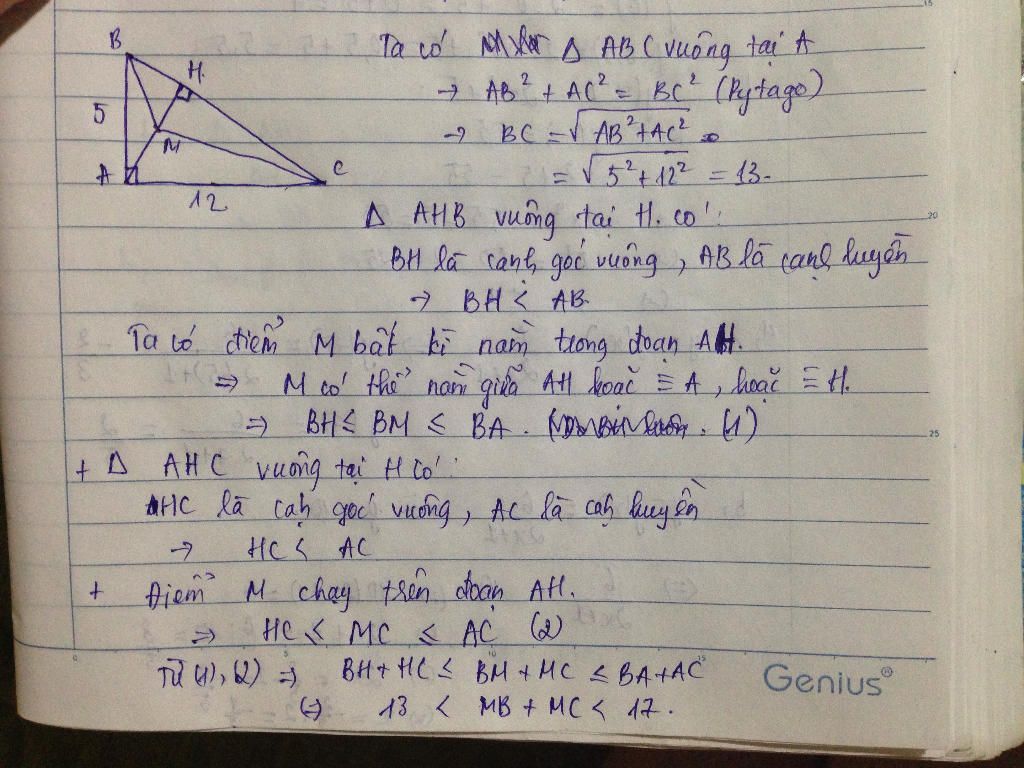 B
H.
5
M
A
C
12
Ta có Δ ABC vuông tại A
→ AB² + AC² = BC² (Pytago)
→ BC = √AB²+AC²
= √5²+12² = 13.
Δ AHB vuông tại H. có:
BH là cạnh góc vuông, AB là cạnh huyền
→ BH < AB.
Ta có điểm M bất kì nằm trong đoạn AH.
⇒ M có thể nằm giữa AH hoặc ≡ A, hoặc ≡ H.
⇒ BH ≤ BM ≤ BA. (1)
+ Δ AHC vuông tại H có:
HC là cạh góc vuông, AC là cạh huyền
→ HC < AC
+ Điểm M chạy trên đoạn AH.
⇒ HC ≤ MC ≤ AC (2)
Từ (1), (2) ⇒ BH + HC ≤ BM + MC ≤ BA + AC
(⇒) 13 < MB + MC < 17.
Genius
15
20
25
0
10
15